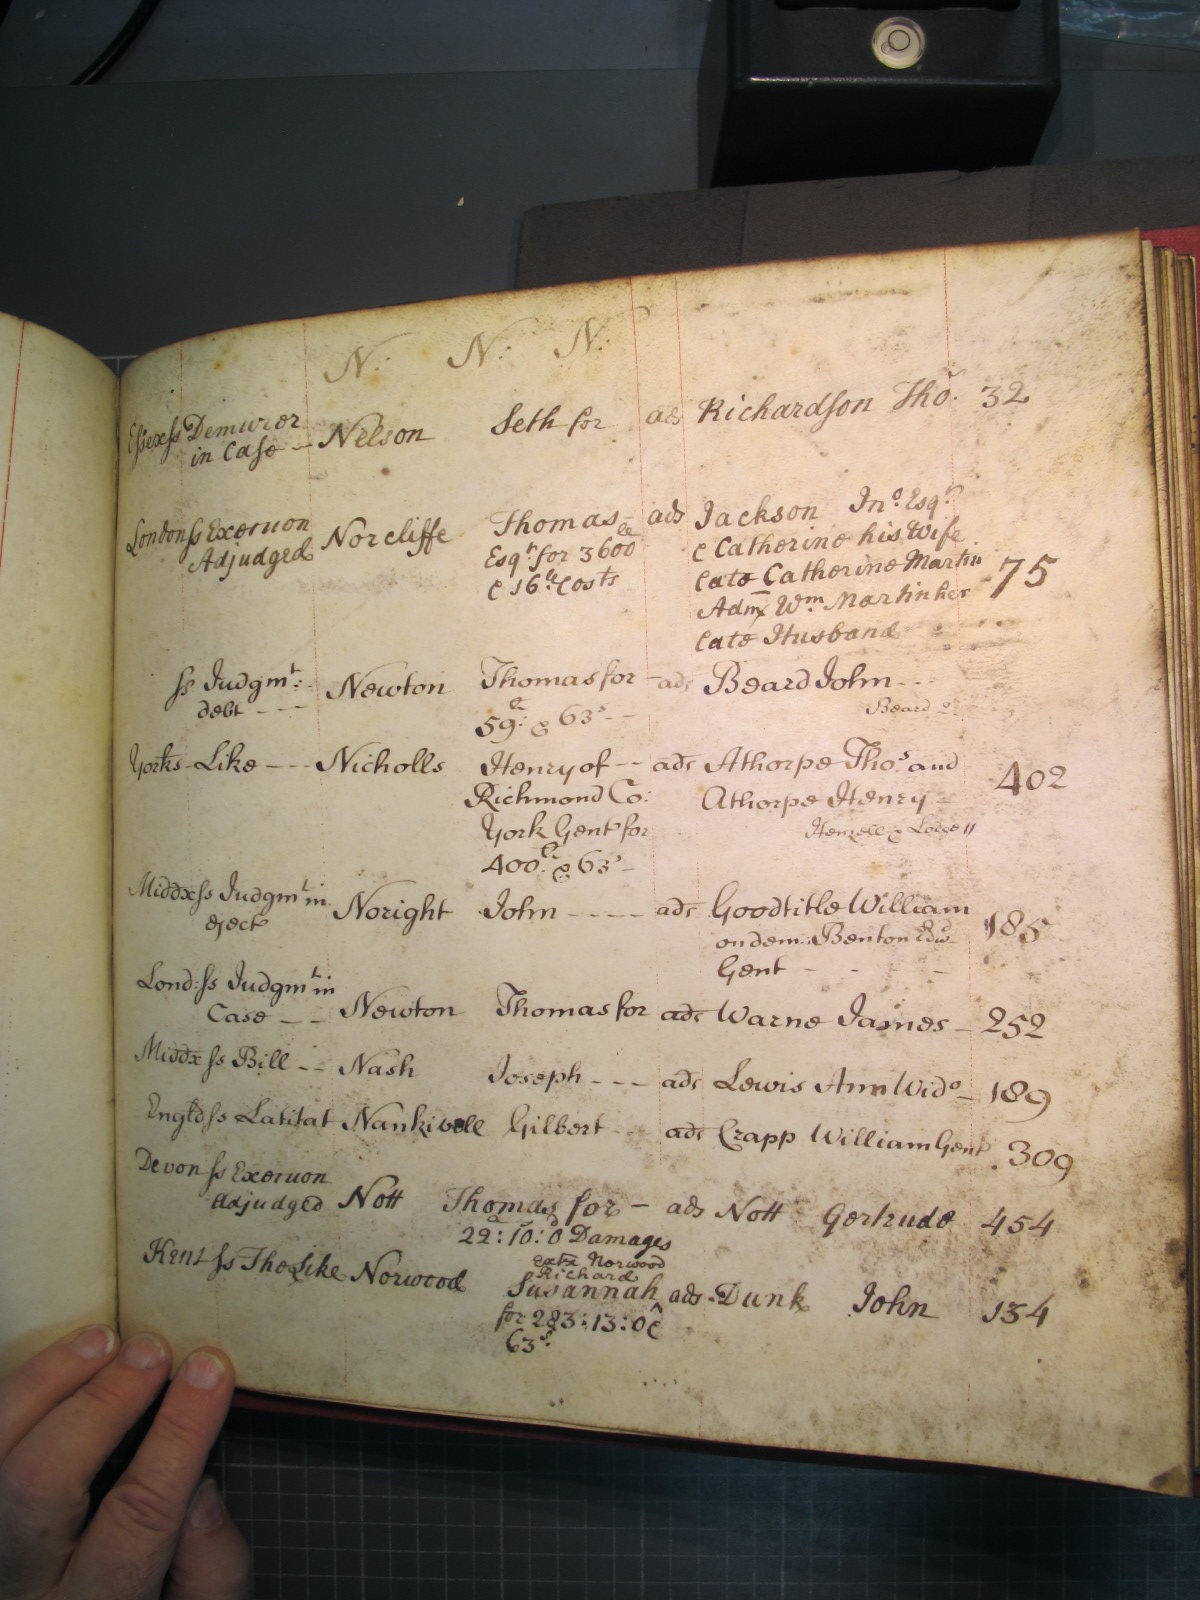 N: N: N:
Essex ss Demurrer
in Case -- Nelson Seth for ads Richardson Tho. 32
London ss Execucon Norcliffe Thomas ads Jackson Jno. Esqr.
Adjudged Esqr. for 3600 li & Catherine his Wife
& 16d. Costs late Catherine Martin 75
Admx Wm. Martin her
late Husband
ss Judgmt: - Newton Thomas for - ads Beard John ---
debt --- 59li: & 63s -- Beard
Yorks - Like --- Nicholls Henry of -- ads Athorpe Thos. and 402
Richmond Co: Athorpe Henry
York Gent for
400li. & 63s -
Middx ss Judgmt in Noright John ---- ads Goodtitle William 185
eject on dem: Benton Edwd
Gent - - -
Lond: ss Judgmt in
Case -- Newton Thomas for ads Warne James - 252
Middx ss Bill -- Nash Joseph --- ads Lewis Ann Wido - 189
Engld ss Latitat Nankivell Gilbert -- ads Crapp William Gent 309
Devon ss Execucon
adjudged Nott Thomas for - ads Nott Gertrude 454
22:10:0 Damages
Kent ss The Like Norwood Extx Norwood
Richard
Susannah ads - Dunk John 134
for 283:13:0 &
63s.